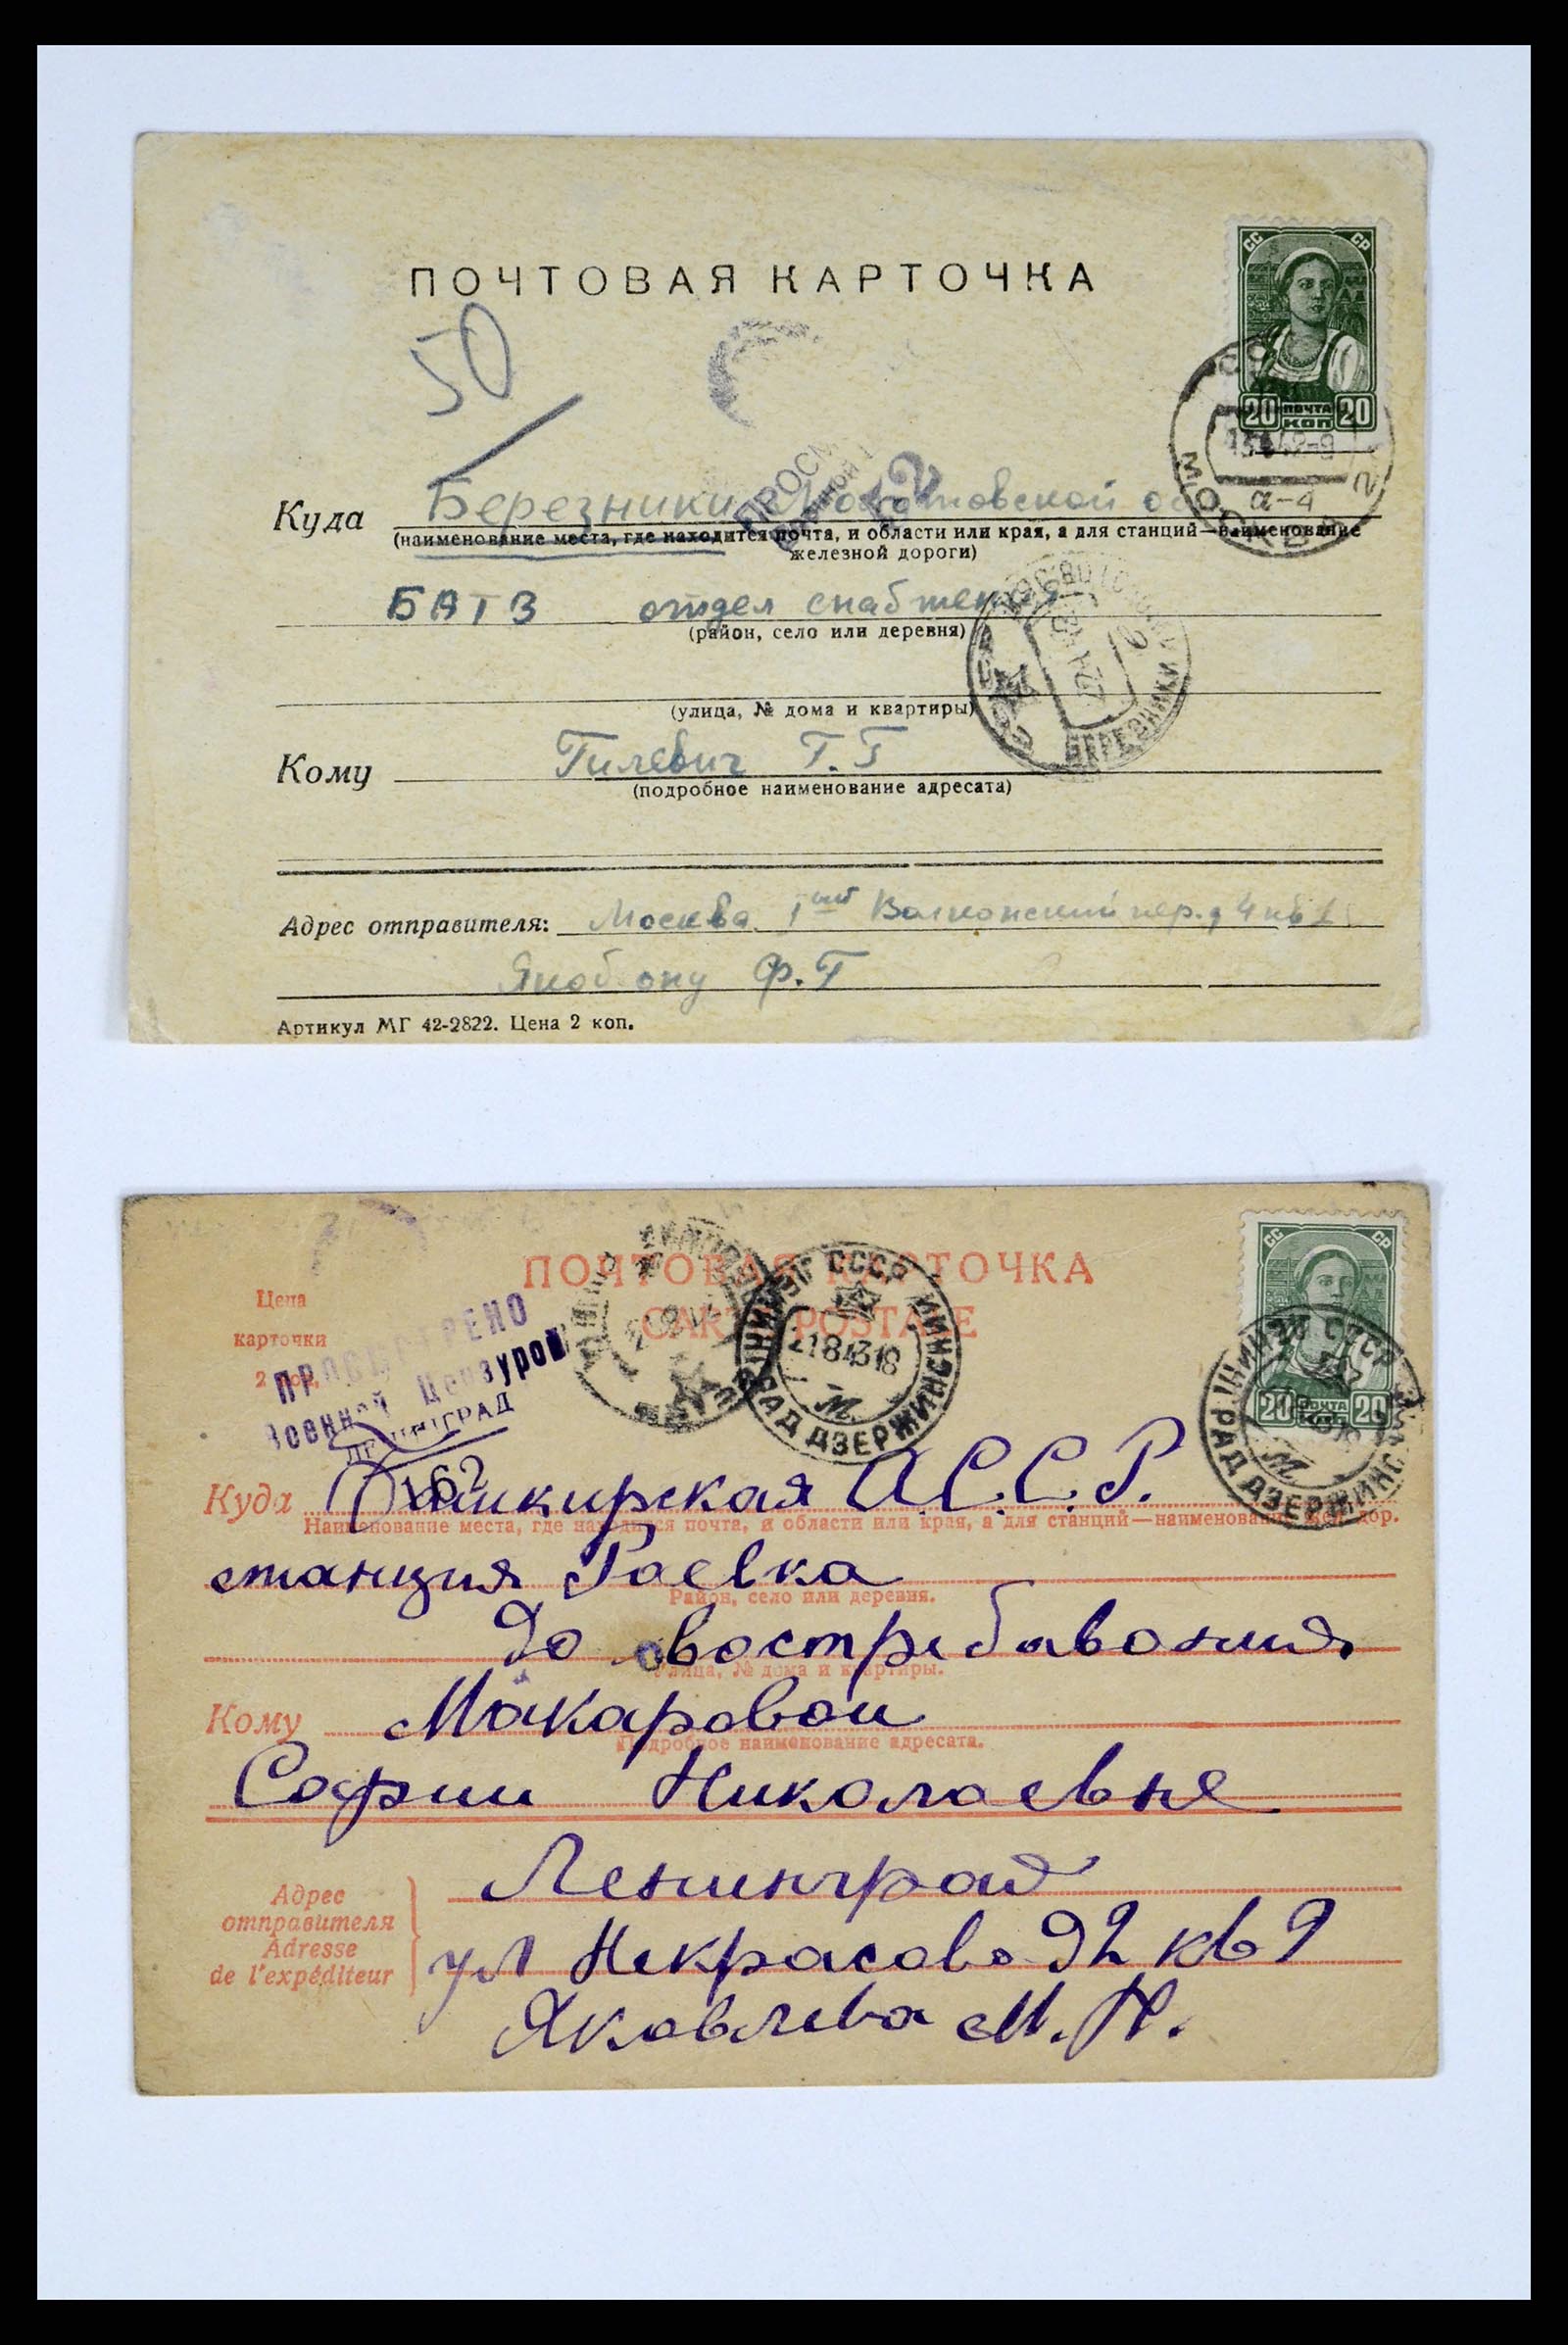 ПОЧТОВАЯ КАРТОЧКА
СС СР
20 ПОЧТА 20
КОП
50
МОСКВА
а-4
ПРОСМ
Куда Березники Молотовской об
(наименование места, где находится почта, и области или края, а для станций—наименование
железной дороги)
БАТЗ отдел снабжения
(район, село или деревня)
БЕРЕЗНИКИ
(улица, № дома и квартиры)
Кому Гилевич Г.Г
(подробное наименование адресата)
Адрес отправителя: Москва 1ый Волконский пер. д 4 кв
Ф.Г
Артикул МГ 42-2822. Цена 2 коп.
ПОЧТОВАЯ КАРТОЧКА
CARTE POSTALE
СС СР
20 ПОЧТА 20
Цена
карточки
2 коп.
ПРОСМОТРЕНО
Военной Цензурой
ЛЕНИНГРАД
162
ЛЕНИНГРАД СССР ДЗЕРЖИНСК
21 8 43 18
М.
ЛЕНИНГРАД СССР ДЗЕРЖИНСК
М.
Куда Башкирская А.С.С.Р.
Наименование места, где находится почта, и области или края, а для станций—наименование жел. дор.
станция Раевка
Район, село или деревня.
до востребования
Улица, № дома и квартиры.
Кому Макаровой
Подробное наименование адресата.
Софии Николаевне
Адрес
отправителя
Adresse
de l'expéditeur
Ленинград
ул Некрасова 92 кв 9
Яковлева М.Н.